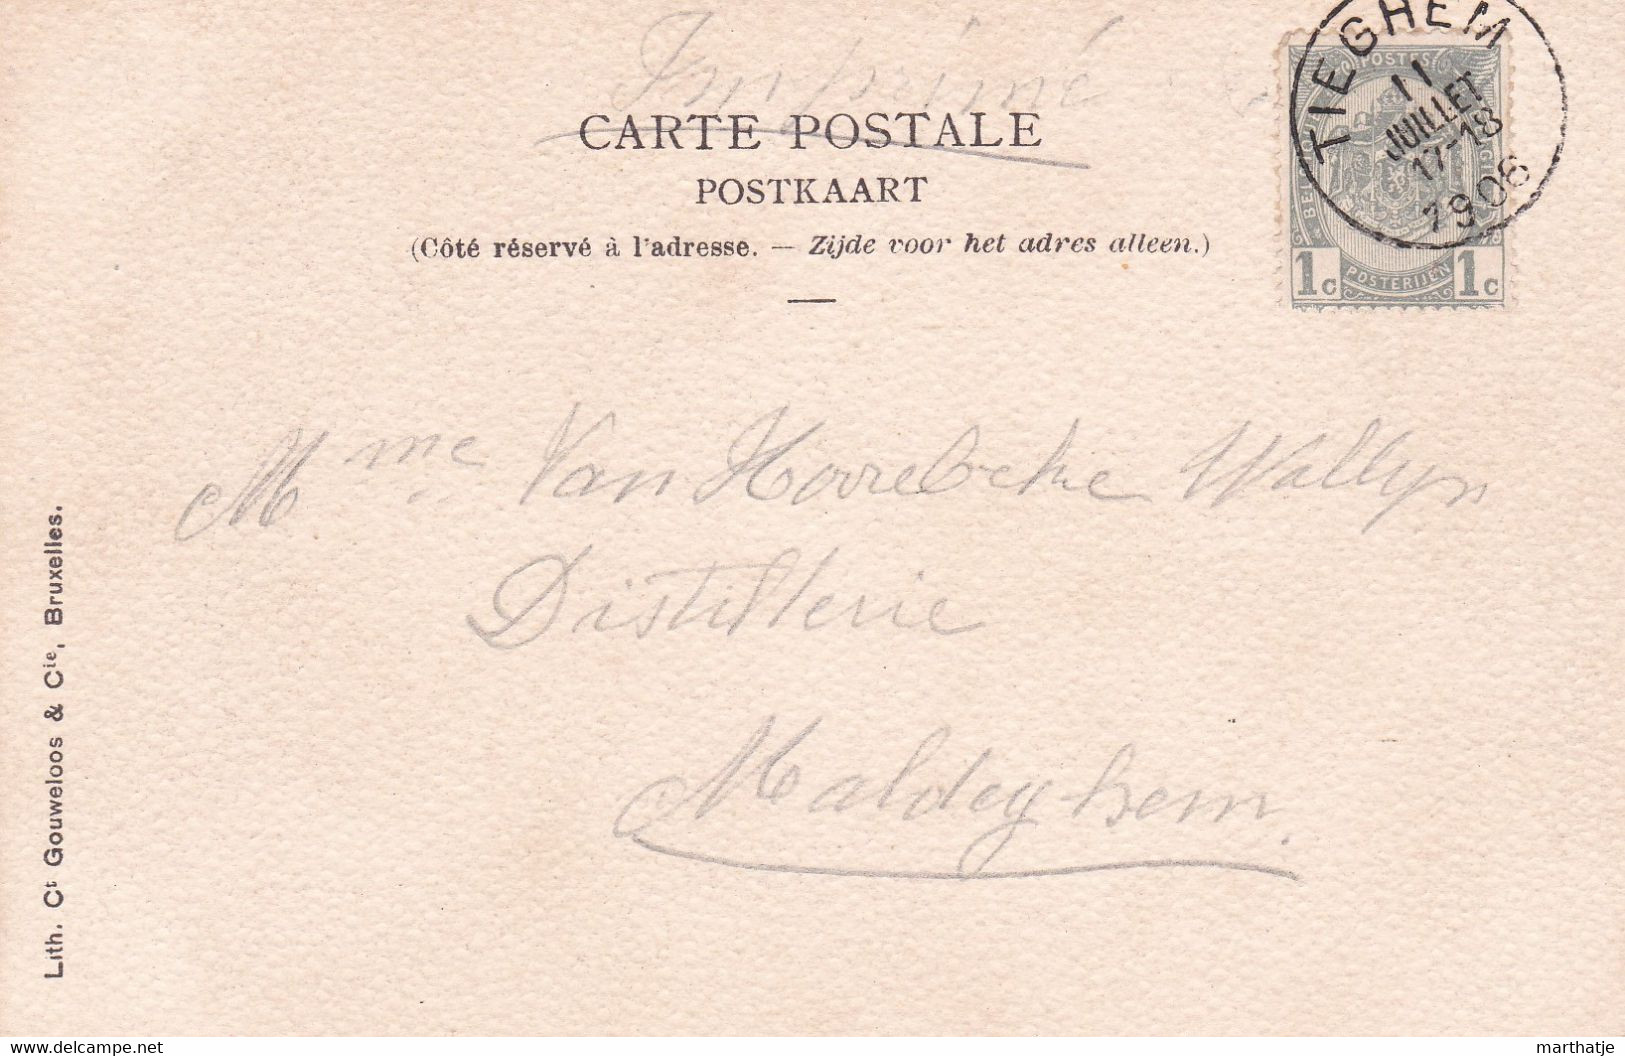 Imprimé
CARTE POSTALE
POSTKAART
(Côté réservé à l'adresse. — Zijde voor het adres alleen.)
TIEGHEM
11
JUILLET
17-18
1906
POSTES
1c POSTERIJEN 1c
Mme Van Hoorebeke Wallyn
Distillerie
Maldeghem.
Lith. Ct Gouweloos & Cie, Bruxelles.
https://www.delcampe.net
marthatje